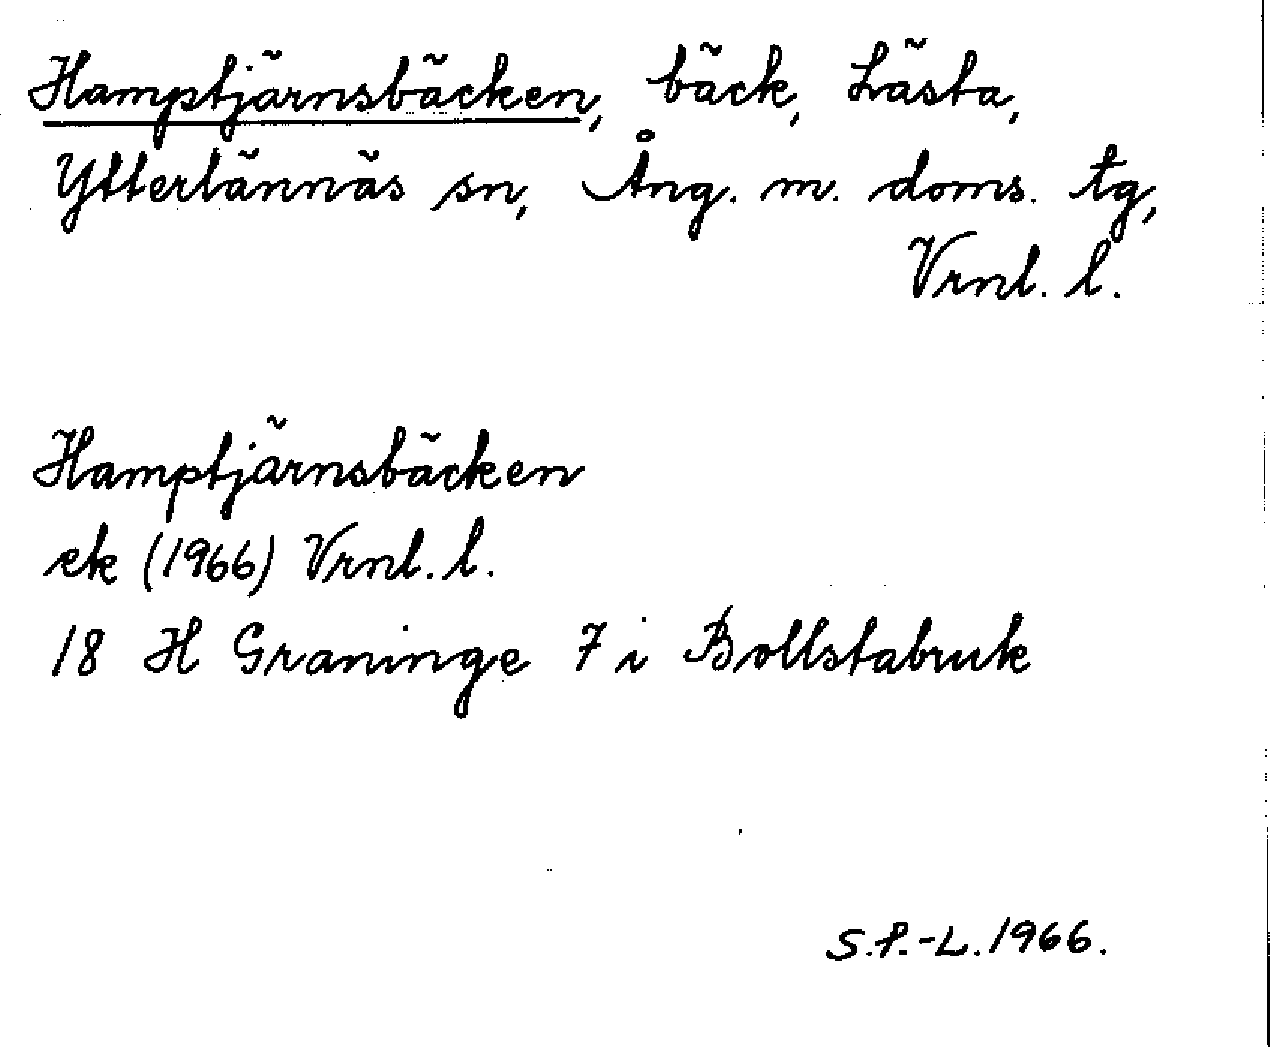 Hamptjärnsbäcken, bäck, Lästa,
Ytterlännäs sn, Ång. m. doms. tg,
Vrnl. l.
Hamptjärnsbäcken
ek (1966) Vrnl. l.
18 H Graninge 7 i Bollstabruk
S.P.-L. 1966.